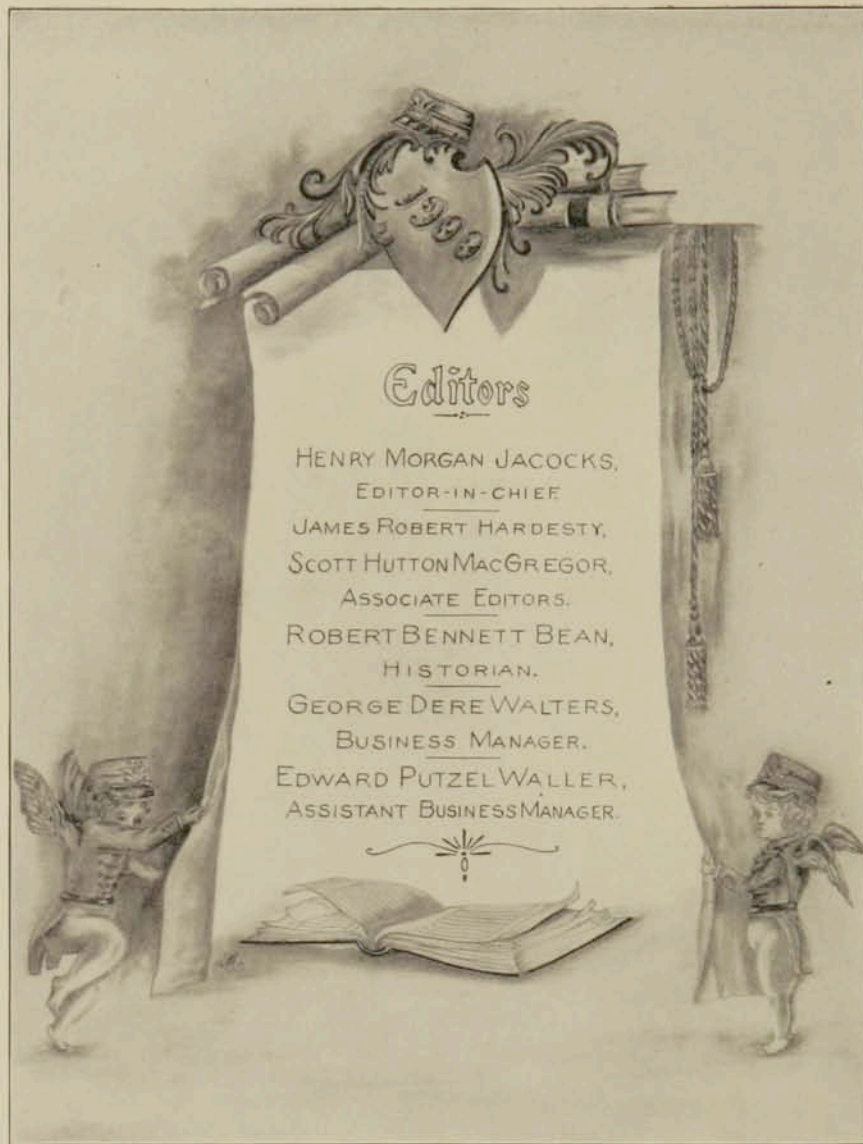 1900
Editors
HENRY MORGAN JACOCKS,
EDITOR-IN-CHIEF
JAMES ROBERT HARDESTY,
SCOTT HUTTON MACGREGOR,
ASSOCIATE EDITORS.
ROBERT BENNETT BEAN,
HISTORIAN.
GEORGE DERE WALTERS,
BUSINESS MANAGER.
EDWARD PUTZEL WALLER,
ASSISTANT BUSINESS MANAGER.